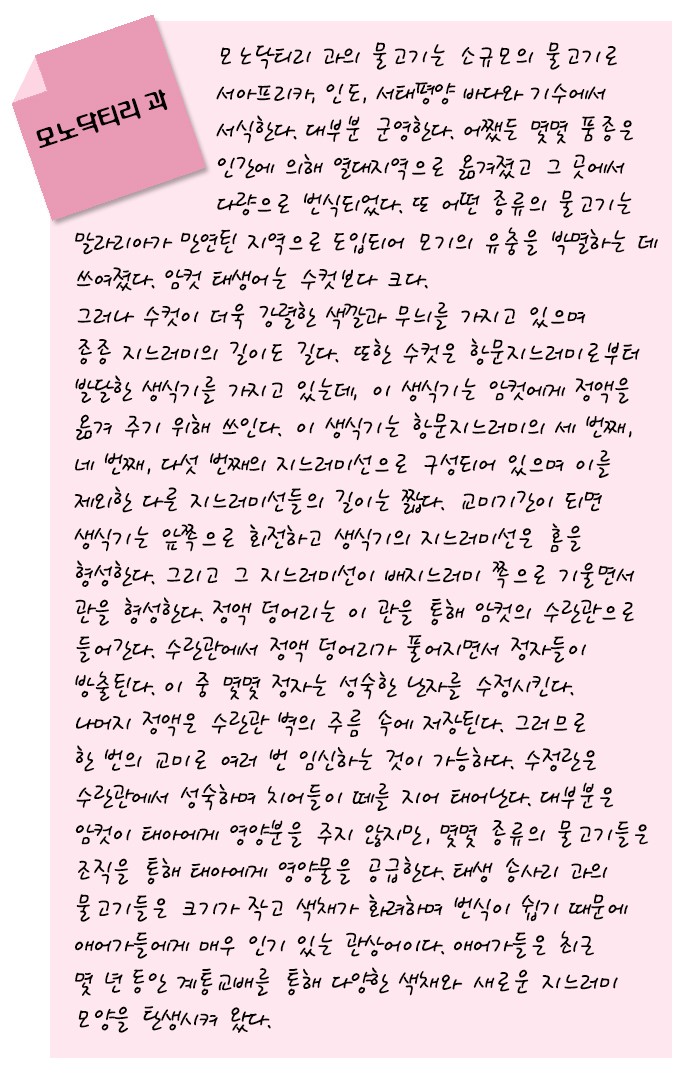 모노닥티리 과
모노닥티리 과의 물고기는 소규모의 물고기로
서아프리카, 인도, 서태평양 바다와 기수에서
서식한다. 대부분 군영한다. 어쨌든 몇몇 품종은
인간에 의해 열대지역으로 옮겨졌고 그 곳에서
다량으로 번식되었다. 또 어떤 종류의 물고기는
말라리아가 만연된 지역으로 도입되어 모기의 유충을 박멸하는 데
쓰여졌다. 암컷 태생어는 수컷보다 크다.
그러나 수컷이 더욱 강렬한 색깔과 무늬를 가지고 있으며
종종 지느러미의 길이도 길다. 또한 수컷은 항문지느러미로부터
발달한 생식기를 가지고 있는데, 이 생식기는 암컷에게 정액을
옮겨 주기 위해 쓰인다. 이 생식기는 항문지느러미의 세 번째,
네 번째, 다섯 번째의 지느러미선으로 구성되어 있으며 이를
제외한 다른 지느러미선들의 길이는 짧다. 교미기간이 되면
생식기는 앞쪽으로 회전하고 생식기의 지느러미선은 홈을
형성한다. 그리고 그 지느러미선이 배지느러미 쪽으로 기울면서
관을 형성한다. 정액 덩어리는 이 관을 통해 암컷의 수란관으로
들어간다. 수란관에서 정액 덩어리가 풀어지면서 정자들이
방출된다. 이 중 몇몇 정자는 성숙한 난자를 수정시킨다.
나머지 정액은 수란관 벽의 주름 속에 저장된다. 그러므로
한 번의 교미로 여러 번 임신하는 것이 가능하다. 수정란은
수란관에서 성숙하며 치어들이 떼를 지어 태어난다. 대부분은
암컷이 태아에게 영양분을 주지 않지만, 몇몇 종류의 물고기들은
조직을 통해 태아에게 영양물을 공급한다. 태생 송사리 과의
물고기들은 크기가 작고 색채가 화려하며 번식이 쉽기 때문에
애어가들에게 매우 인기 있는 관상어이다. 애어가들은 최근
몇 년 동안 계통교배를 통해 다양한 색채와 새로운 지느러미
모양을 탄생시켜 왔다.